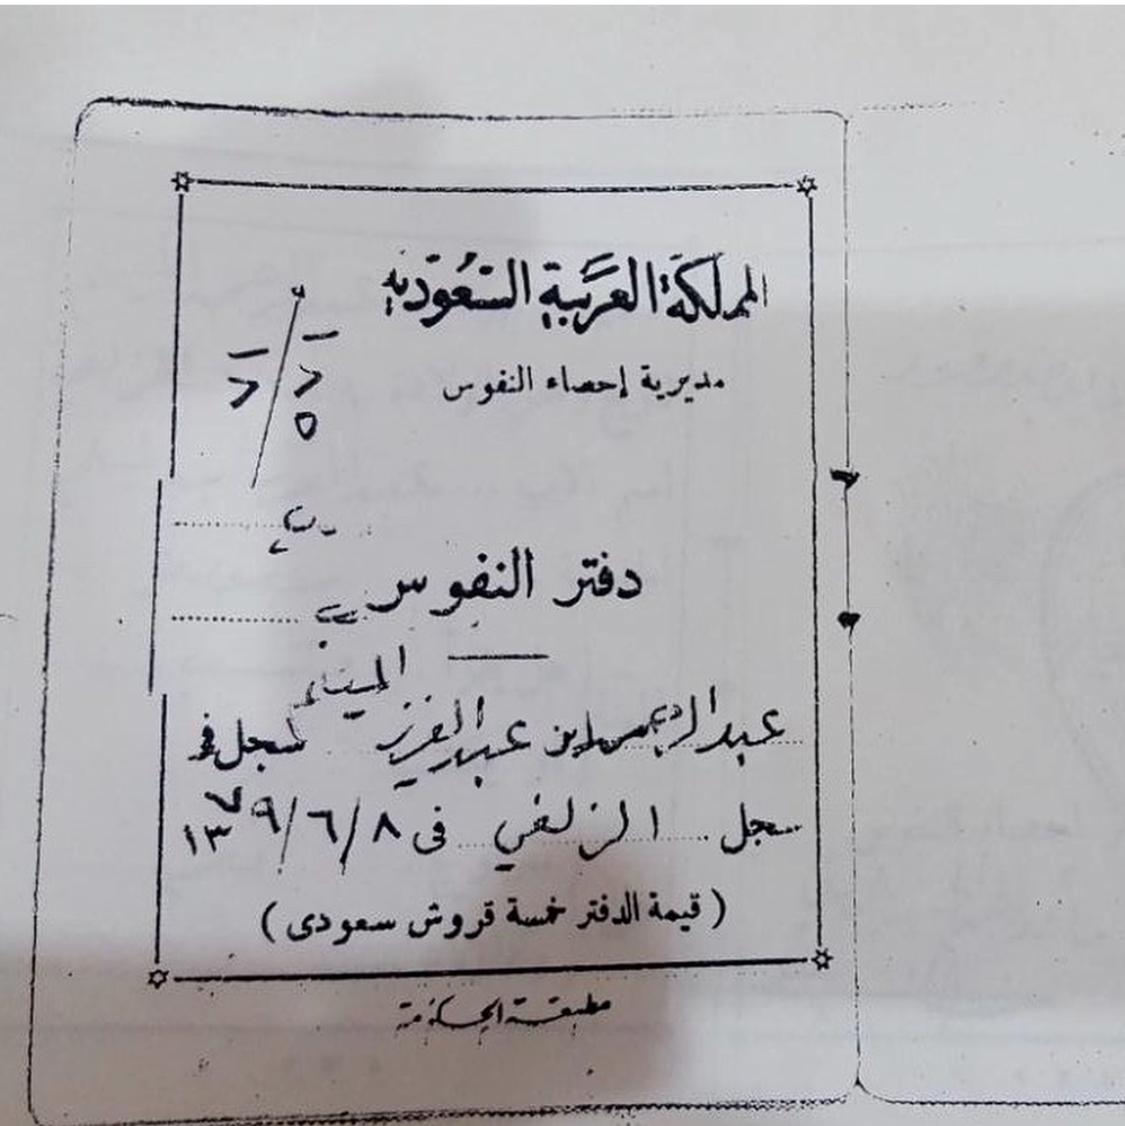 المملكة العربية السعودية
مديرية إحصاء النفوس
دفتر النفوس
عبدالرحمن ابن عبدالعزيز
سجل في
سجل الزلفي فى ٨/٦/١٣٧٩
( قيمة الدفتر خمسة قروش سعودى )
مطبعة الحكومة